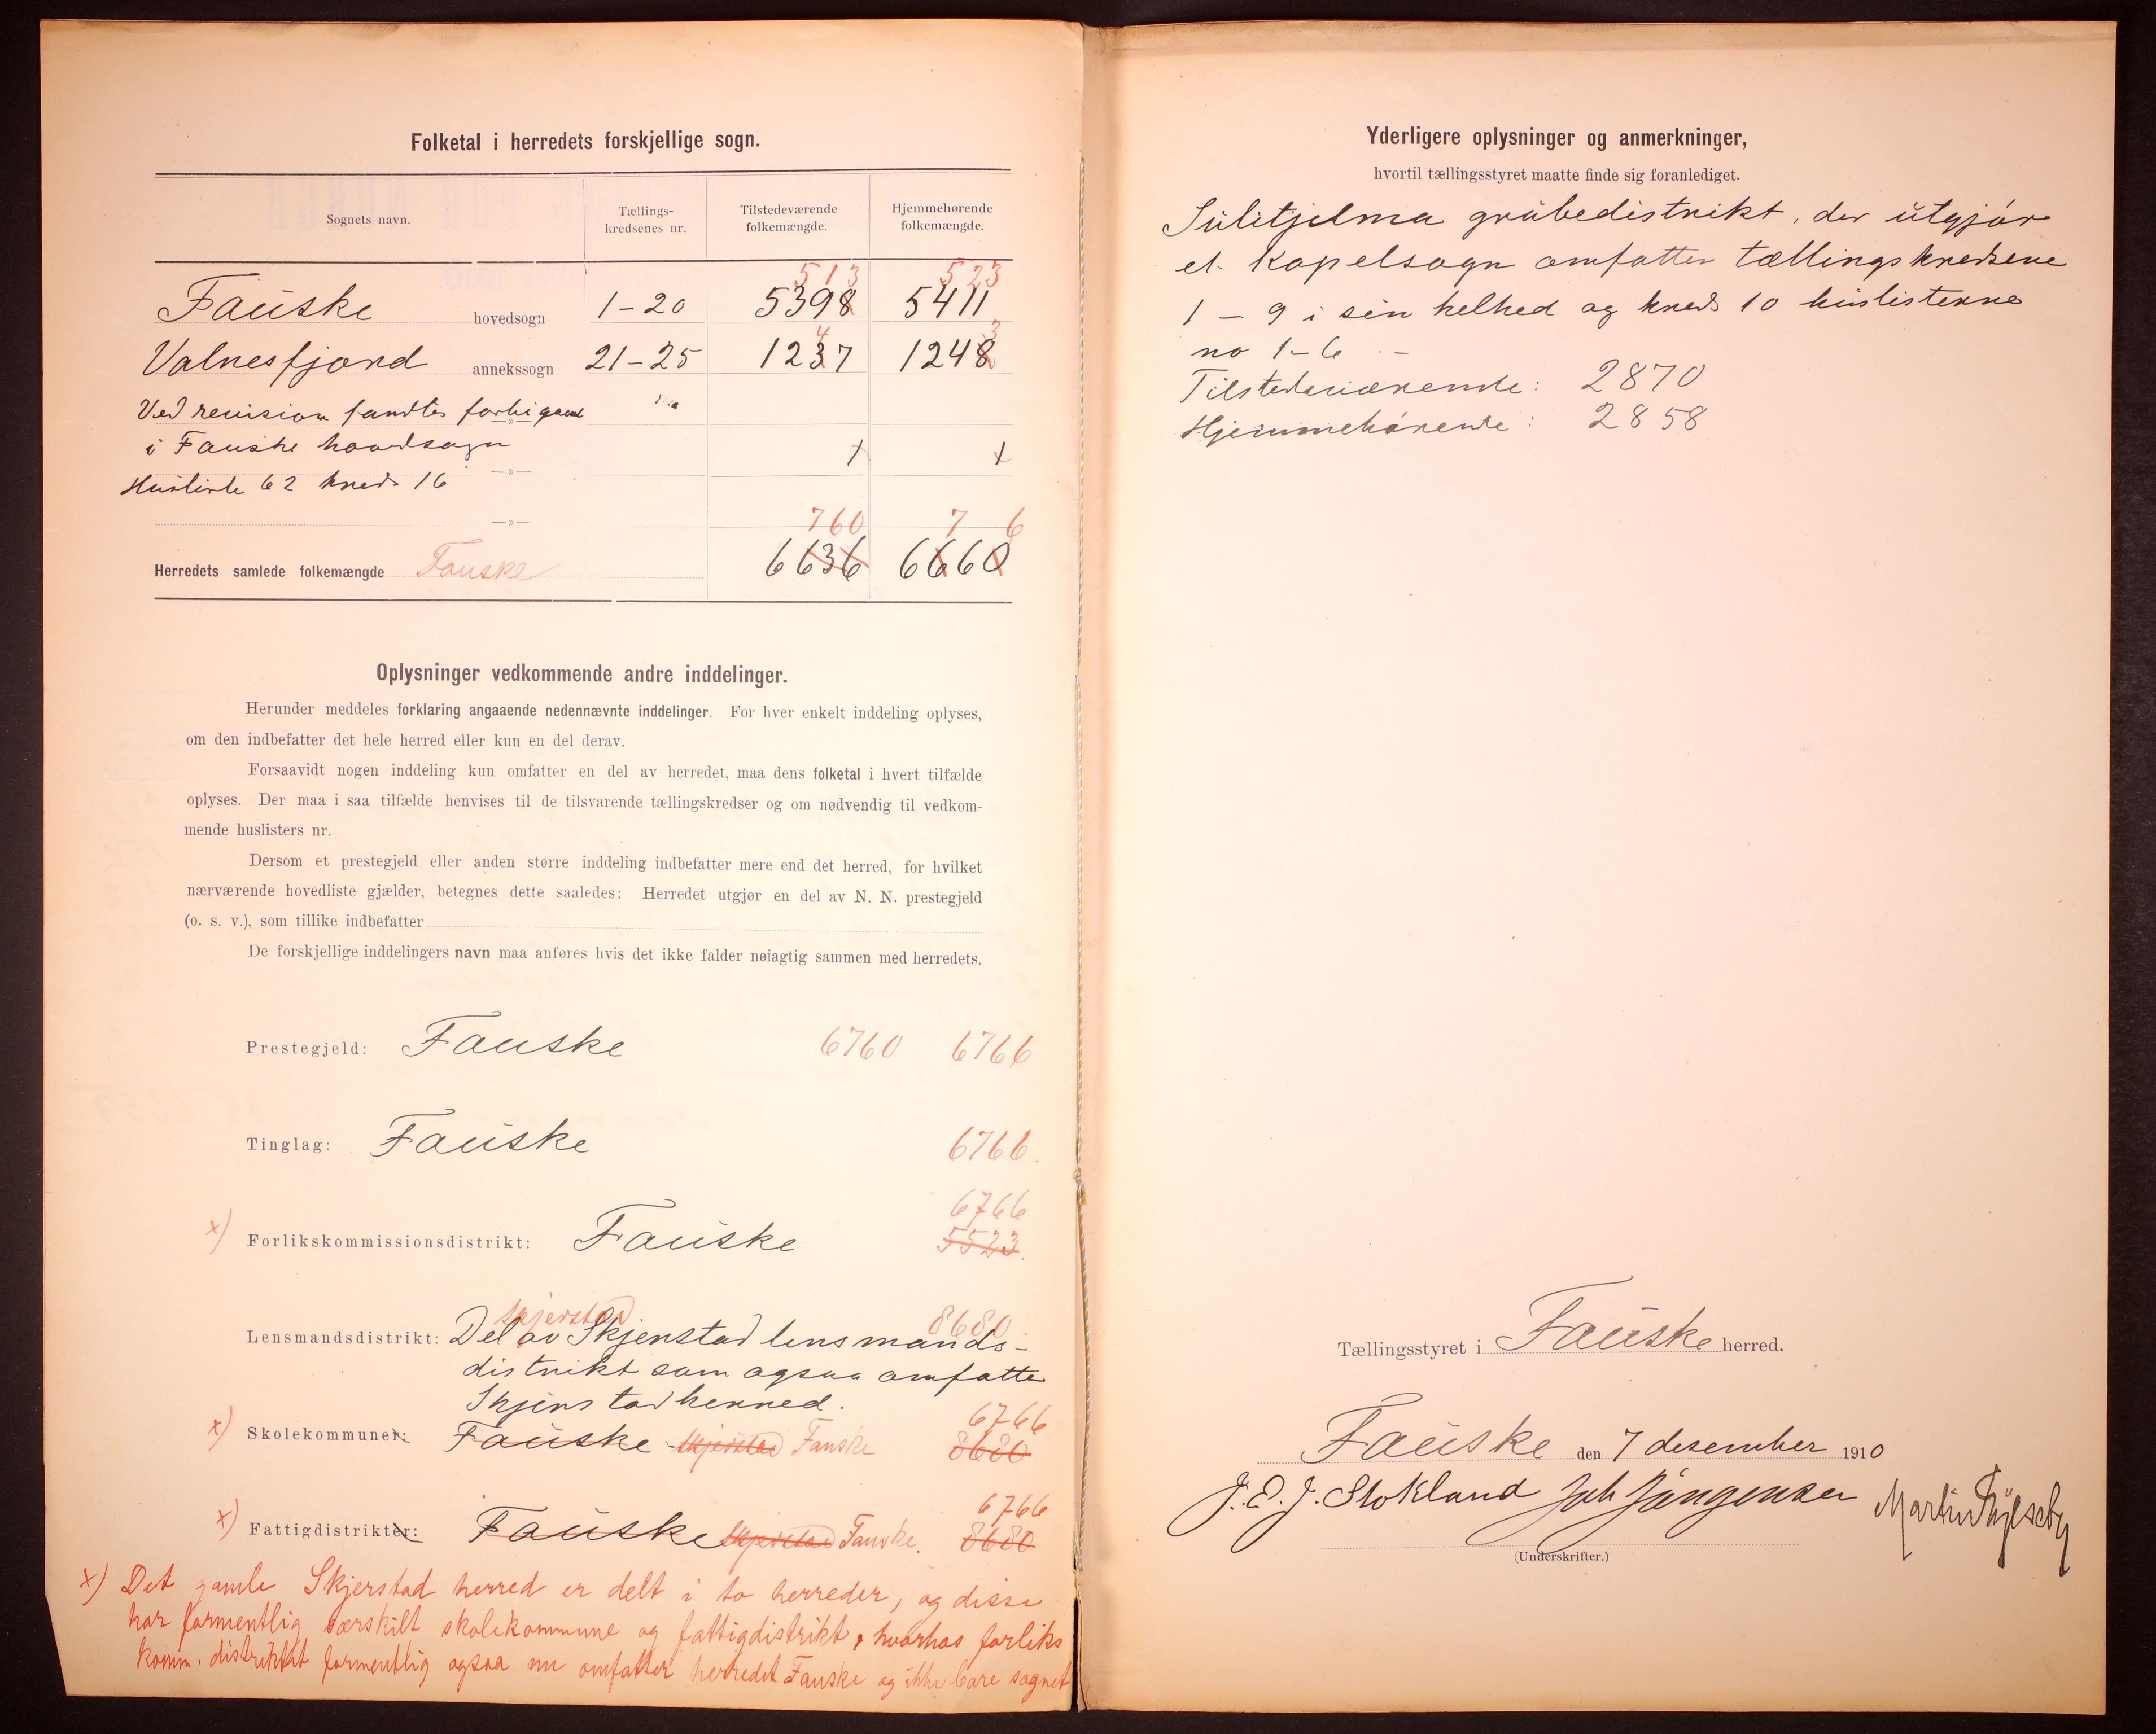 Folketal i herredets forskjellige sogn.
Sognets navn.
Tællings-
kredsenes nr.
Tilstedeværende
folkemængde.
Hjemmehørende
folkemængde.
513 523
Fauske hovedsogn 1-20 5398 5411
4 3
Valnesfjord annekssogn 21-25 1237 1248
Ved revision fandtes forbigaaet
i Fauske hovedsogn 1 1
Husliste 62 kreds 16
760 7 6
Herredets samlede folkemængde Fauske 6636 6660
Oplysninger vedkommende andre inddelinger.
Herunder meddeles forklaring angaaende nedennævnte inddelinger. For hver enkelt inddeling oplyses,
om den indbefatter det hele herred eller kun en del derav.
Forsaavidt nogen inddeling kun omfatter en del av herredet, maa dens folketal i hvert tilfælde
oplyses. Der maa i saa tilfælde henvises til de tilsvarende tællingskredser og om nødvendig til vedkom-
mende huslisters nr.
Dersom et prestegjeld eller anden større inddeling indbefatter mere end det herred, for hvilket
nærværende hovedliste gjælder, betegnes dette saaledes: Herredet utgjør en del av N. N. prestegjeld
(o. s. v.), som tillike indbefatter
De forskjellige inddelingers navn maa anføres hvis det ikke falder nøiagtig sammen med herredets.
Prestegjeld: Fauske 6760 6766
Tinglag: Fauske 6766.
6766
x) Forlikskommissionsdistrikt: Fauske 5523.
Skjerstad 8680
Lensmandsdistrikt: Del av Skjerstad lensmands-
distrikt som ogsaa omfatter
Skjerstad herred.
6766
x) Skolekommuner: Fauske - Skjerstad Fauske 8680
6766
x) Fattigdistrikter: Fauske Skjerstad Fauske. 8680
x) Det gamle Skjerstad herred er delt i to herreder, og disse
har formentlig særskilt skolekommune og fattigdistrikt, hvorhos forliks
komm. distriktet formentlig ogsaa nu omfatter herredet Fauske og ikke bare sognet
Yderligere oplysninger og anmerkninger,
hvortil tællingsstyret maatte finde sig foranlediget.
Sulitjelma grubedistrikt, der utgjør
et kapelsogn omfatter tællingskredsene
1 - 9 i sin helhed og kreds 10 huslisterne
no 1-6 -
Tilstedeværende: 2870
Hjemmehørende: 2858
Tællingsstyret i Fauske herred.
Fauske den 7 desember 1910
J. E. J. Stokland Joh Jörgensen Martin
(Underskrifter.)